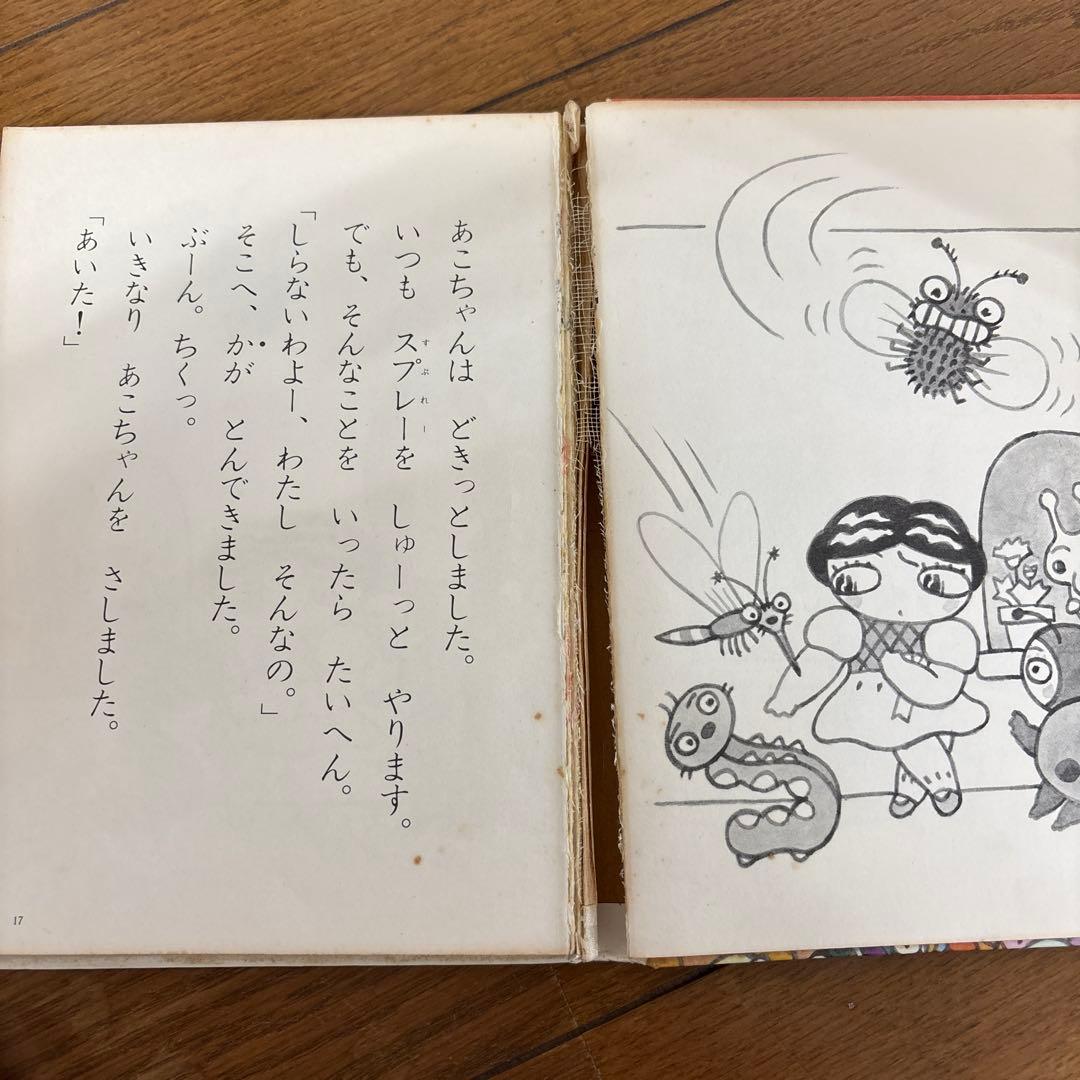 あこちゃんは どきっとしました。
いつも スプレーを しゅーっと やります。
すぷれー
でも、そんなことを いったら たいへん。
「しらないわよー、わたし そんなの。」
そこへ、かが とんできました。
ぶーん。ちくっ。
いきなり あこちゃんを さしました。
「あいた！」
17